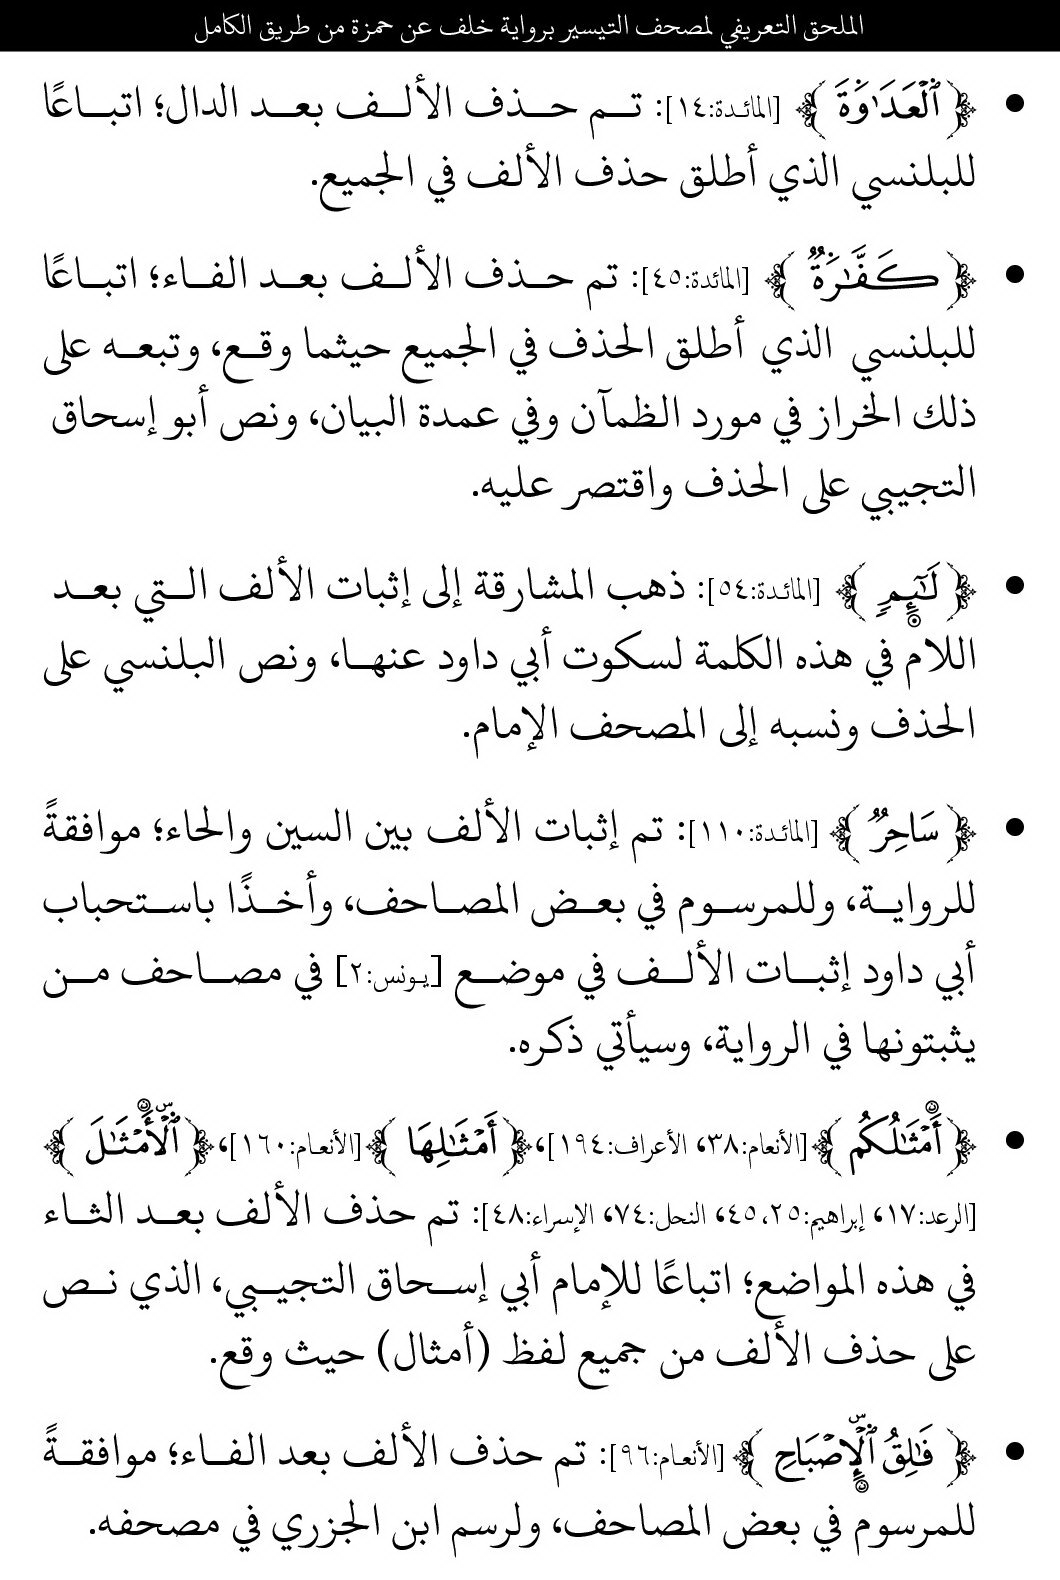 الملحق التعريفي لمصحف التيسير برواية خلف عن حمزة من طريق الكامل
• ﴿ ٱلۡعَدَٰوَةَ ﴾ [المائدة:١٤]: تم حذف الألف بعد الدال؛ اتباعًا
للبلنسي الذي أطلق حذف الألف في الجميع.
• ﴿ كَفَّٰرَةٞ ﴾ [المائدة:٤٥]: تم حذف الألف بعد الفاء؛ اتباعًا
للبلنسي الذي أطلق الحذف في الجميع حيثما وقع، وتبعه على
ذلك الخراز في مورد الظمآن وفي عمدة البيان، ونص أبو إسحاق
التجيبي على الحذف واقتصر عليه.
• ﴿ لَٰٓئِمٖ ﴾ [المائدة:٥٤]: ذهب المشارقة إلى إثبات الألف التي بعد
اللام في هذه الكلمة لسكوت أبي داود عنها، ونص البلنسي على
الحذف ونسبه إلى المصحف الإمام.
• ﴿ سَاحِرٞ ﴾ [المائدة:١١٠]: تم إثبات الألف بين السين والحاء؛ موافقةً
للرواية، وللمرسوم في بعض المصاحف، وأخذًا باستحباب
أبي داود إثبات الألف في موضع [يونس:٢] في مصاحف من
يثبتونها في الرواية، وسيأتي ذكره.
• ﴿ أَمۡثَٰلُكُم ﴾ [الأنعام:٣٨، الأعراف:١٩٤]، ﴿ أَمۡثَٰلِهَا ﴾ [الأنعام:١٦٠]، ﴿ ٱلۡأَمۡثَٰلَ ﴾
[الرعد:١٧، إبراهيم:٢٥،٤٥، النحل:٧٤، الإسراء:٤٨]: تم حذف الألف بعد الثاء
في هذه المواضع؛ اتباعًا للإمام أبي إسحاق التجيبي، الذي نص
على حذف الألف من جميع لفظ (أمثال) حيث وقع.
• ﴿ فَٰلِقُ ٱلۡإِصۡبَاحِ ﴾ [الأنعام:٩٦]: تم حذف الألف بعد الفاء؛ موافقةً
للمرسوم في بعض المصاحف، ولرسم ابن الجزري في مصحفه.